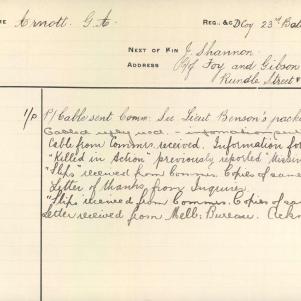 ME Arnott. G.A. REG., &c D Coy 23rd Bat
NEXT OF KIN J. Shannon
ADDRESS c/o Foy and Gibson
Rundle Street
1/p P/Cable sent Comm: See Lieut Benson's pack
Cabled reply recd. - information
Cable from Commrs. received. Information for
"Killed in Action" previously reported "Missin
"Slips" received from Commrs. Copies of same
Letter of thanks from Inquirer.
"Slips received from Commrs. Copies of sa
Letter received from Melb: Bureau. Ackn